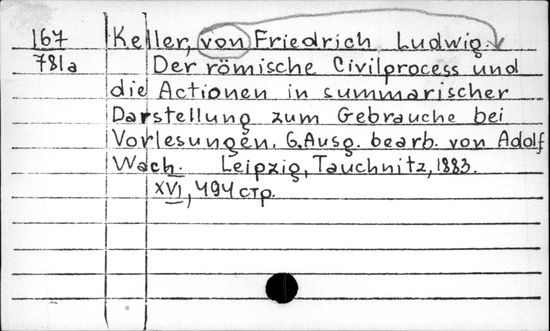 167 Keller, von Friedrich Ludwig.
781a Der römische Civilprocess und
die Actionen in summarischer
Darstellung zum Gebrauche bei
Vorlesungen. 6. Ausg. bearb. von Adolf
Wach. Leipzig, Tauchnitz, 1883.
XVI, 494 стр.